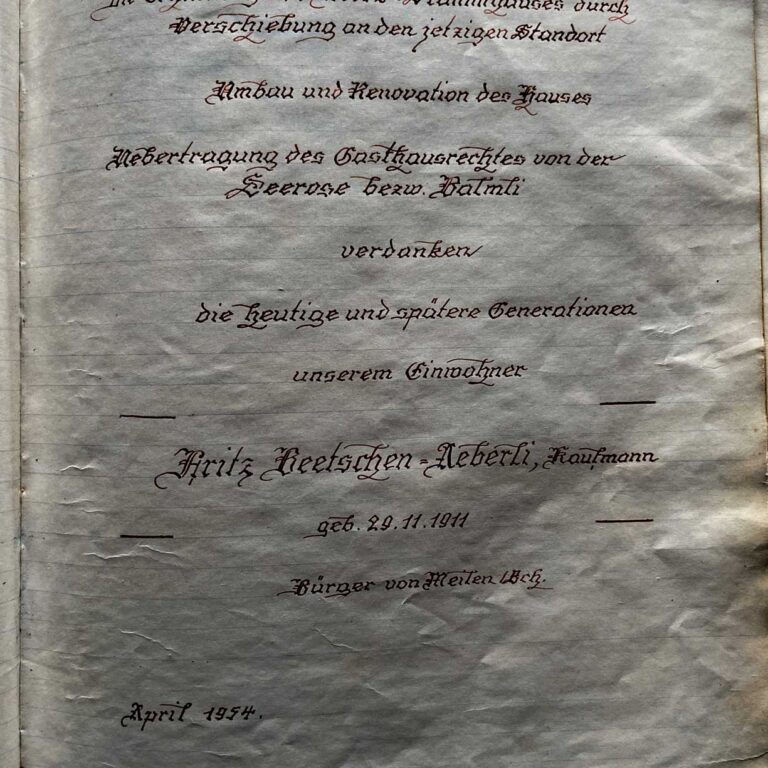 Die Stammhauses durch
Verschiebung an den jetzigen Standort
Umbau und Renovation des Hauses
Uebertragung des Gasthausrechtes von der
Seerose bezw. Balmli
verdanken
die heutige und spätere Generationen
unserem Einwohner
Fritz Beetschen-Aeberli, Kaufmann
geb. 29.11.1911
Bürger von Meilen /Zch.
April 1954.